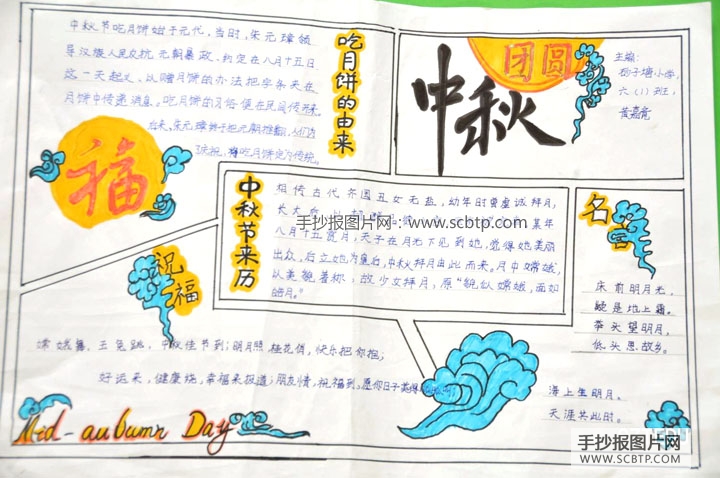 吃月饼的由来
中秋节吃月饼始于元代,当时,朱元璋领
导汉族人民反抗元朝暴政,约定在八月十五日
这一天起义,以赠月饼的办法把字条夹在
月饼中传递消息。吃月饼的习俗便在民间传开来。
后来,朱元璋终于把元朝推翻,
福
中秋
团圆
主编:
砂子塘小学,
六(1)班,
中秋节来历
相传古代齐国丑女无盐,幼年时曾虔诚拜月,
手抄报图片网:www.scbtp.com
某年
八月十五赏月,天子在月光下见到她,觉得她美丽
出众,后立她为皇后,中秋拜月由此而来。月中嫦娥,
以美貌著称,故少女拜月,愿“貌似嫦娥,面如
皓月。”
名言
床前明月光,
疑是地上霜。
举头望明月,
低头思故乡。
海上生明月,
天涯共此时。
祝福
嫦娥舞,玉兔跳,中秋佳节到;明月照,桂花俏,快乐把你抱;
好运来,健康绕,幸福来报道;朋友情,祝福到,愿你日子
Mid-autumn Day
手抄报图片网
WWW.SCBTP.COM